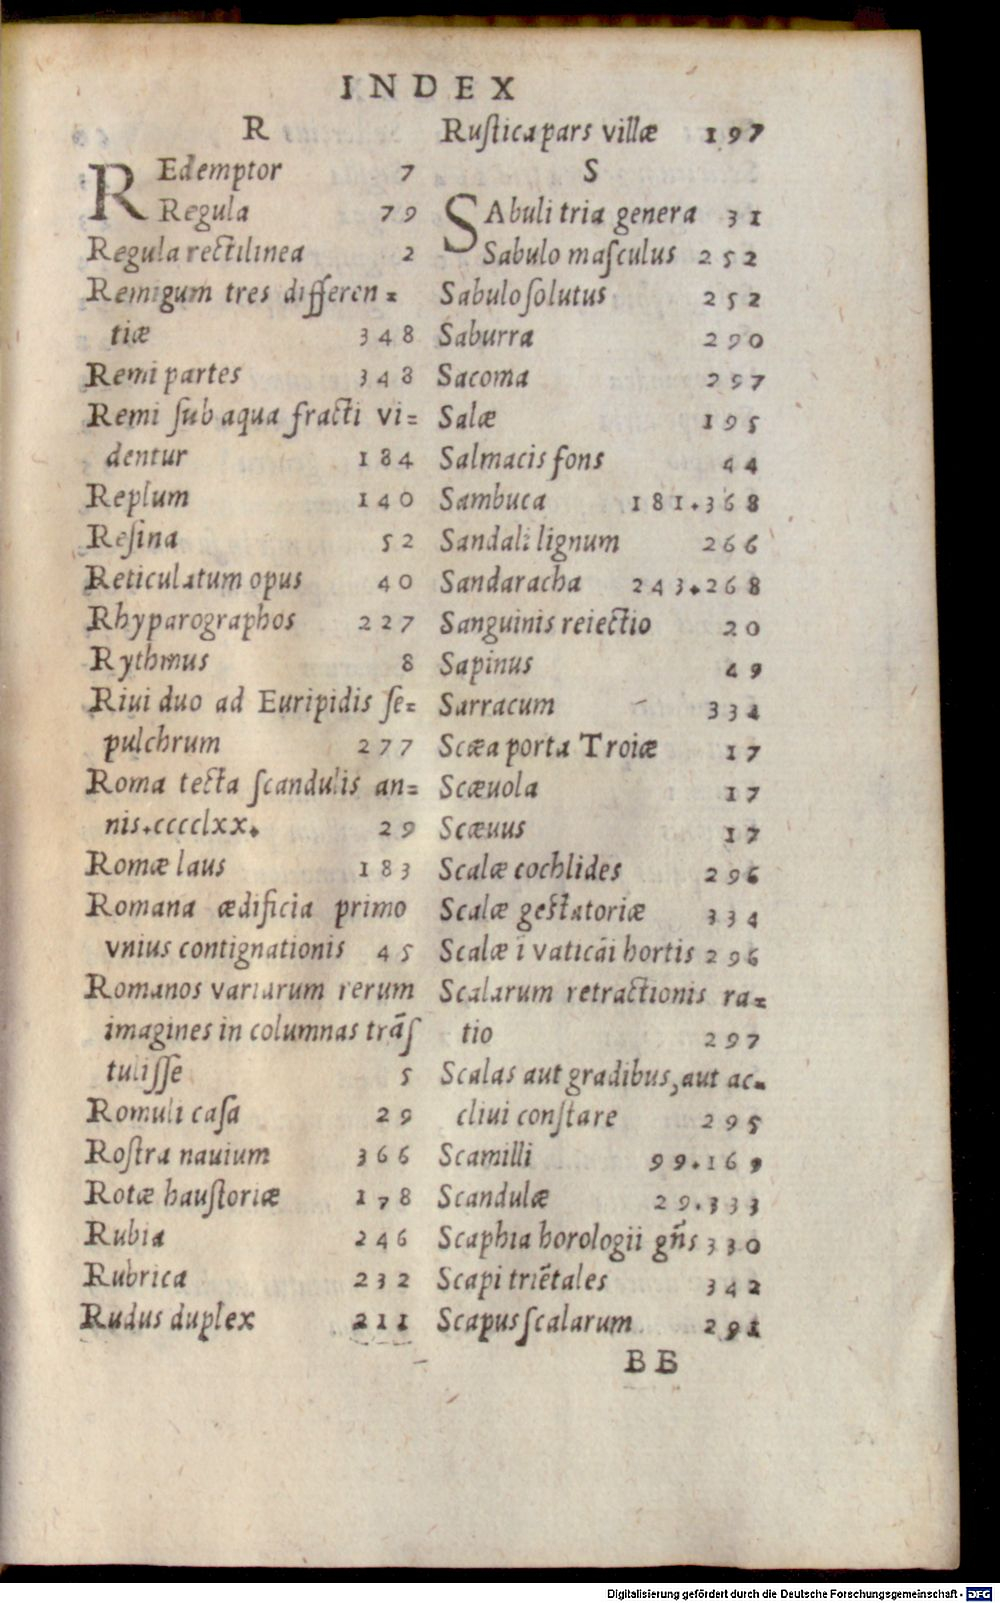 INDEX
R
REdemptor 7
Regula 79
Regula rectilinea 2
Remigum tres differen=
tiæ 348
Remi partes 348
Remi ſub aqua fracti vi=
dentur 184
Replum 140
Reſina 52
Reticulatum opus 40
Rhyparographos 227
Rythmus 8
Riui duo ad Euripidis ſe=
pulchrum 277
Roma tecta ſcandulis an=
nis.cccclxx. 29
Romæ laus 183
Romana ædificia primo
vnius contignationis 45
Romanos variarum rerum
imagines in columnas trāſ
tuliſſe 5
Romuli caſa 29
Roſtra nauium 366
Rotæ hauſtoriæ 178
Rubia 246
Rubrica 232
Rudus duplex 211
Ruſtica pars villæ 197
S
SAbuli tria genera 31
Sabulo maſculus 252
Sabulo ſolutus 252
Saburra 290
Sacoma 297
Salæ 195
Salmacis fons 44
Sambuca 181.368
Sandali lignum 266
Sandaracha 243.268
Sanguinis reiectio 20
Sapinus 49
Sarracum 334
Scæa porta Troiæ 17
Scæuola 17
Scæuus 17
Scalæ cochlides 296
Scalæ geſtatoriæ 334
Scalæ ī vaticāi hortis 296
Scalarum retractionis ra=
tio 297
Scalas aut gradibus, aut ac=
cliui conſtare 295
Scamilli 99.169
Scandulæ 29.333
Scaphia horologii gñs 330
Scapi triētales 342
Scapus ſcalarum 291
BB
Digitalisierung gefördert durch die Deutsche Forschungsgemeinschaft - DFG